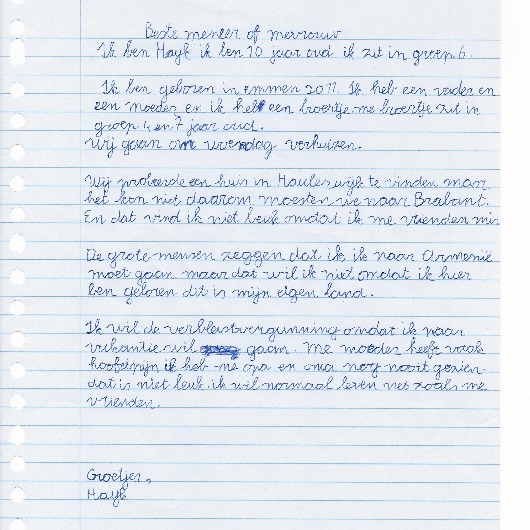 Beste meneer of mevrouw
Ik ben Hayk ik ben 10 jaar oud ik zit in groep 6.
Ik ben geboren in emmen 2011. Ik heb een vader en
een moeder en ik heb een broertje me broertje zit in
groep 4 en 7 jaar oud.
Wij gaan om woendag verhuizen.
Wij probeerde een huis in Haulerwijk te vinden maar
het kon niet daarom moesten we naar Brabant.
En dat vind ik niet leuk omdat ik me vrienden mis
De grote mensen zeggen dat ik ik naar Armenië
moet gaan maar dat wil ik niet omdat ik hier
ben geboren dit is mijn eigen land.
Ik wil de verbleifsvergunning omdat ik naar
vakantie wil gaan. Me moeder heeft vaak
hoofdpijn ik heb me opa en oma nog nooit gezien
dat is niet leuk ik wil normaal leven net zoals me
vrienden.
Groetjes,
Hayk